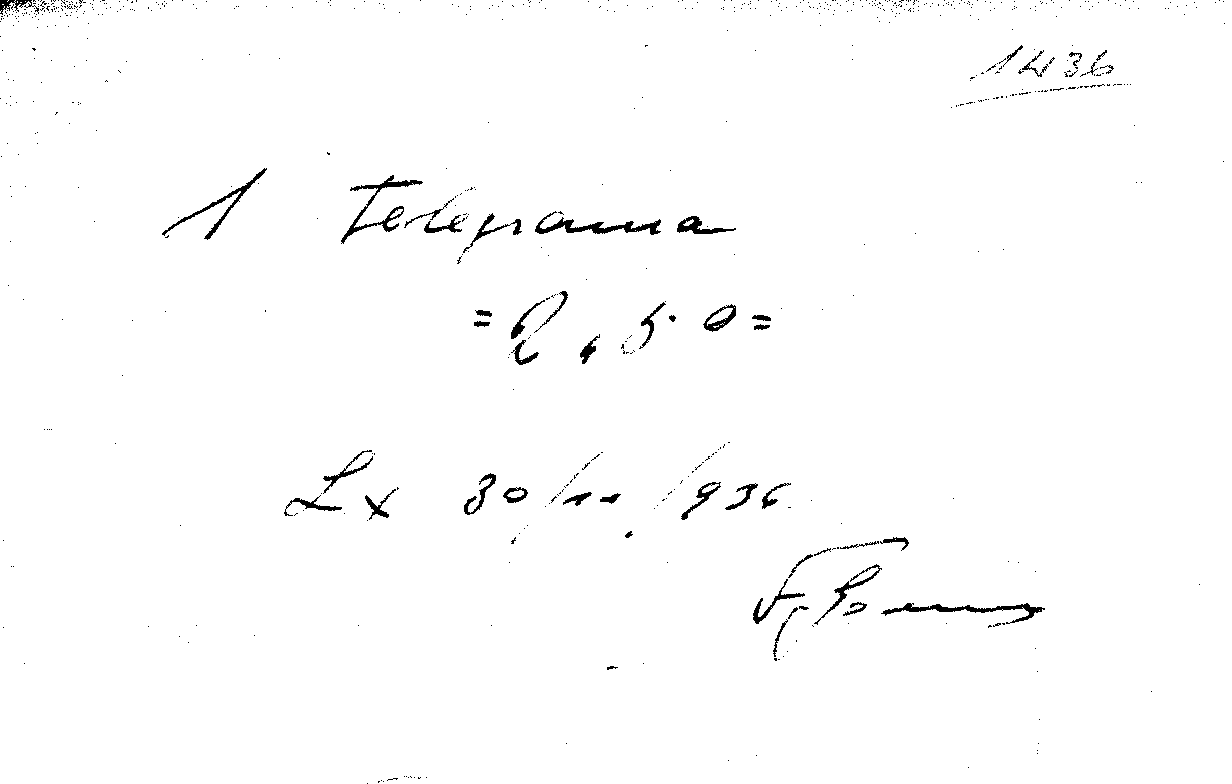 1436
1 Telegrama
= 2,50 =
Lx 30/11/936